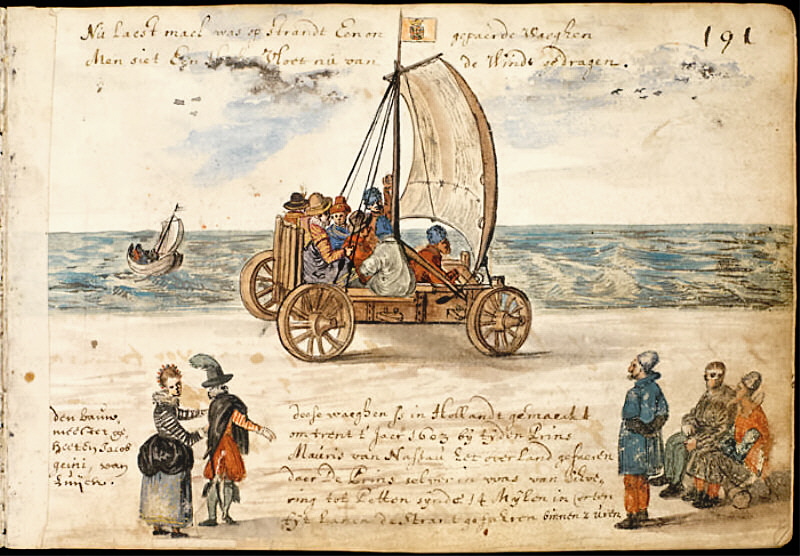 Nu laest mael was op strandt Een on gepaerde Waeghen
Men siet Een Vloet nu van de Windt gedragen.
191
den bauw,
meester
heeten Jacob
van
Luijck.
deese waeghen is in Hollandt gemaeckt
omtrent t' Jaer 1603 bij tyden Prins
Mauris van Nassau Het over Land
daer De Prins selver in was van
ring tot Petten synde 14 Mylen in
de Strant binnen 2 uren